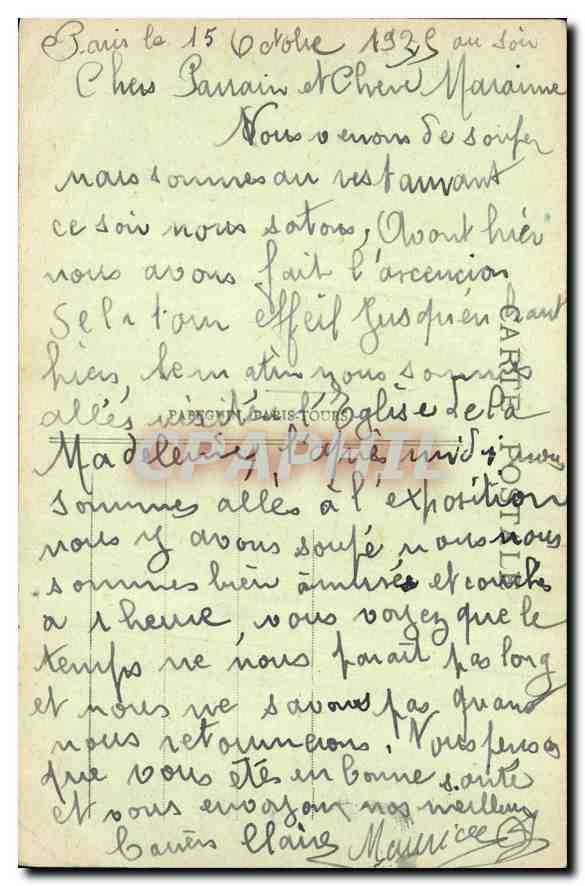 Paris le 15 Octobre 1925 au soir
Chers Parrain et Chère Maraine
Nous venons de souper
nous sommes au restaurant
ce soir nous sortons, Avant hier
nous avons fait l'arcencion
de la tour effeil jusqu'en haut
hiers, le matin nous sommes
allés visité l'Eglise de la
PAPEGHIN, PARIS-TOURS
CARTE POSTALE
CPAPHIL
Madeleine, l'après midi nous
sommes allés à l'exposition
nous y avons soupé nous nous
sommes bien amusés et couchés
a 1 heure, vous voyez que le
temps ne nous parait pas long
et nous ne savons pas quand
nous retournerons. Nous pensons
que vous êtes en bonne santé
et vous envoyons nos meilleurs
Claire Maurice